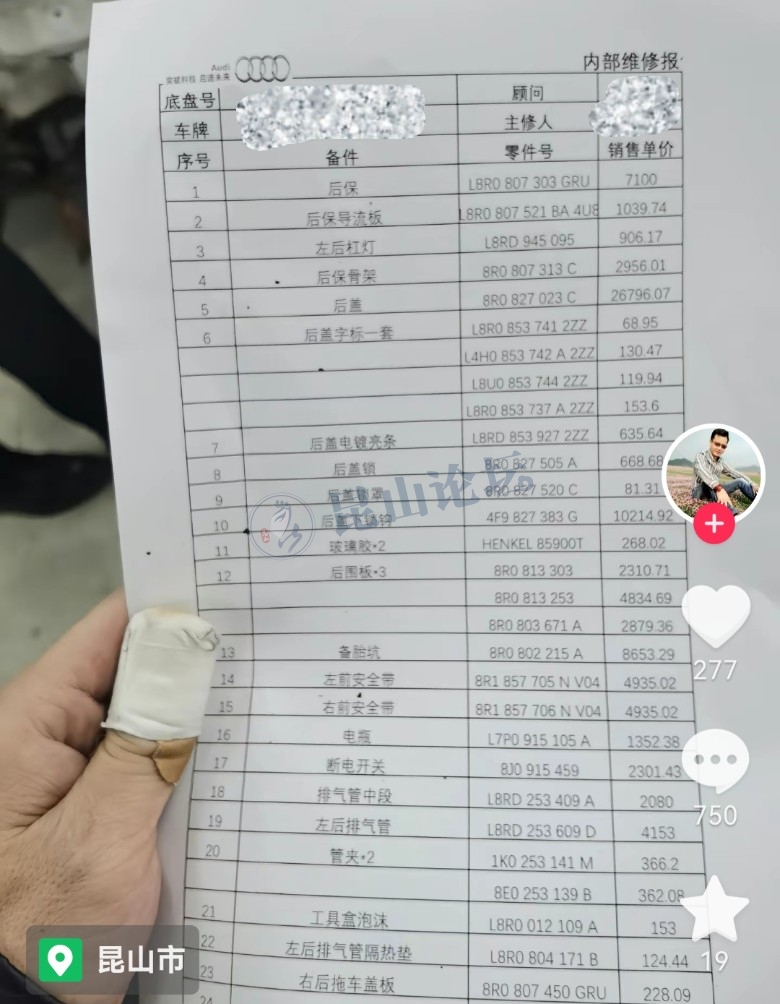 Audi
突破科技 启迪未来
内部维修报
底盘号 顾问
车牌 主修人
序号 备件 零件号 销售单价
1 后保 L8R0 807 303 GRU 7100
2 后保导流板 L8R0 807 521 BA 4U8 1039.74
3 左后杠灯 L8RD 945 095 906.17
4 后保骨架 8R0 807 313 C 2956.01
5 后盖 8R0 827 023 C 26796.07
6 后盖字标一套 L8R0 853 741 2ZZ 68.95
L4H0 853 742 A 2ZZ 130.47
L8U0 853 744 2ZZ 119.94
L8R0 853 737 A 2ZZ 153.6
7 后盖电镀亮条 L8RD 853 927 2ZZ 635.64
8 后盖锁 8R0 827 505 A 668.68
9 后盖锁罩 8R0 827 520 C 81.31
10 后盖 4F9 827 383 G 10214.92
11 玻璃胶*2 HENKEL 85900T 268.02
12 后围板*3 8R0 813 303 2310.71
8R0 813 253 4834.69
8R0 803 671 A 2879.36
13 备胎坑 8R0 802 215 A 8653.29
14 左前安全带 8R1 857 705 N V04 4935.02
15 右前安全带 8R1 857 706 N V04 4935.02
16 电瓶 L7P0 915 105 A 1352.38
17 断电开关 8J0 915 459 2301.43
18 排气管中段 L8RD 253 409 A 2080
19 左后排气管 L8RD 253 609 D 4153
20 管夹*2 1K0 253 141 M 366.2
8E0 253 139 B 362.08
21 工具盒泡沫 L8R0 012 109 A 153
22 左后排气管隔热垫 L8R0 804 171 B 124.44
23 右后拖车盖板 8R0 807 450 GRU 228.09
24
昆山论坛
277
750
19
昆山市